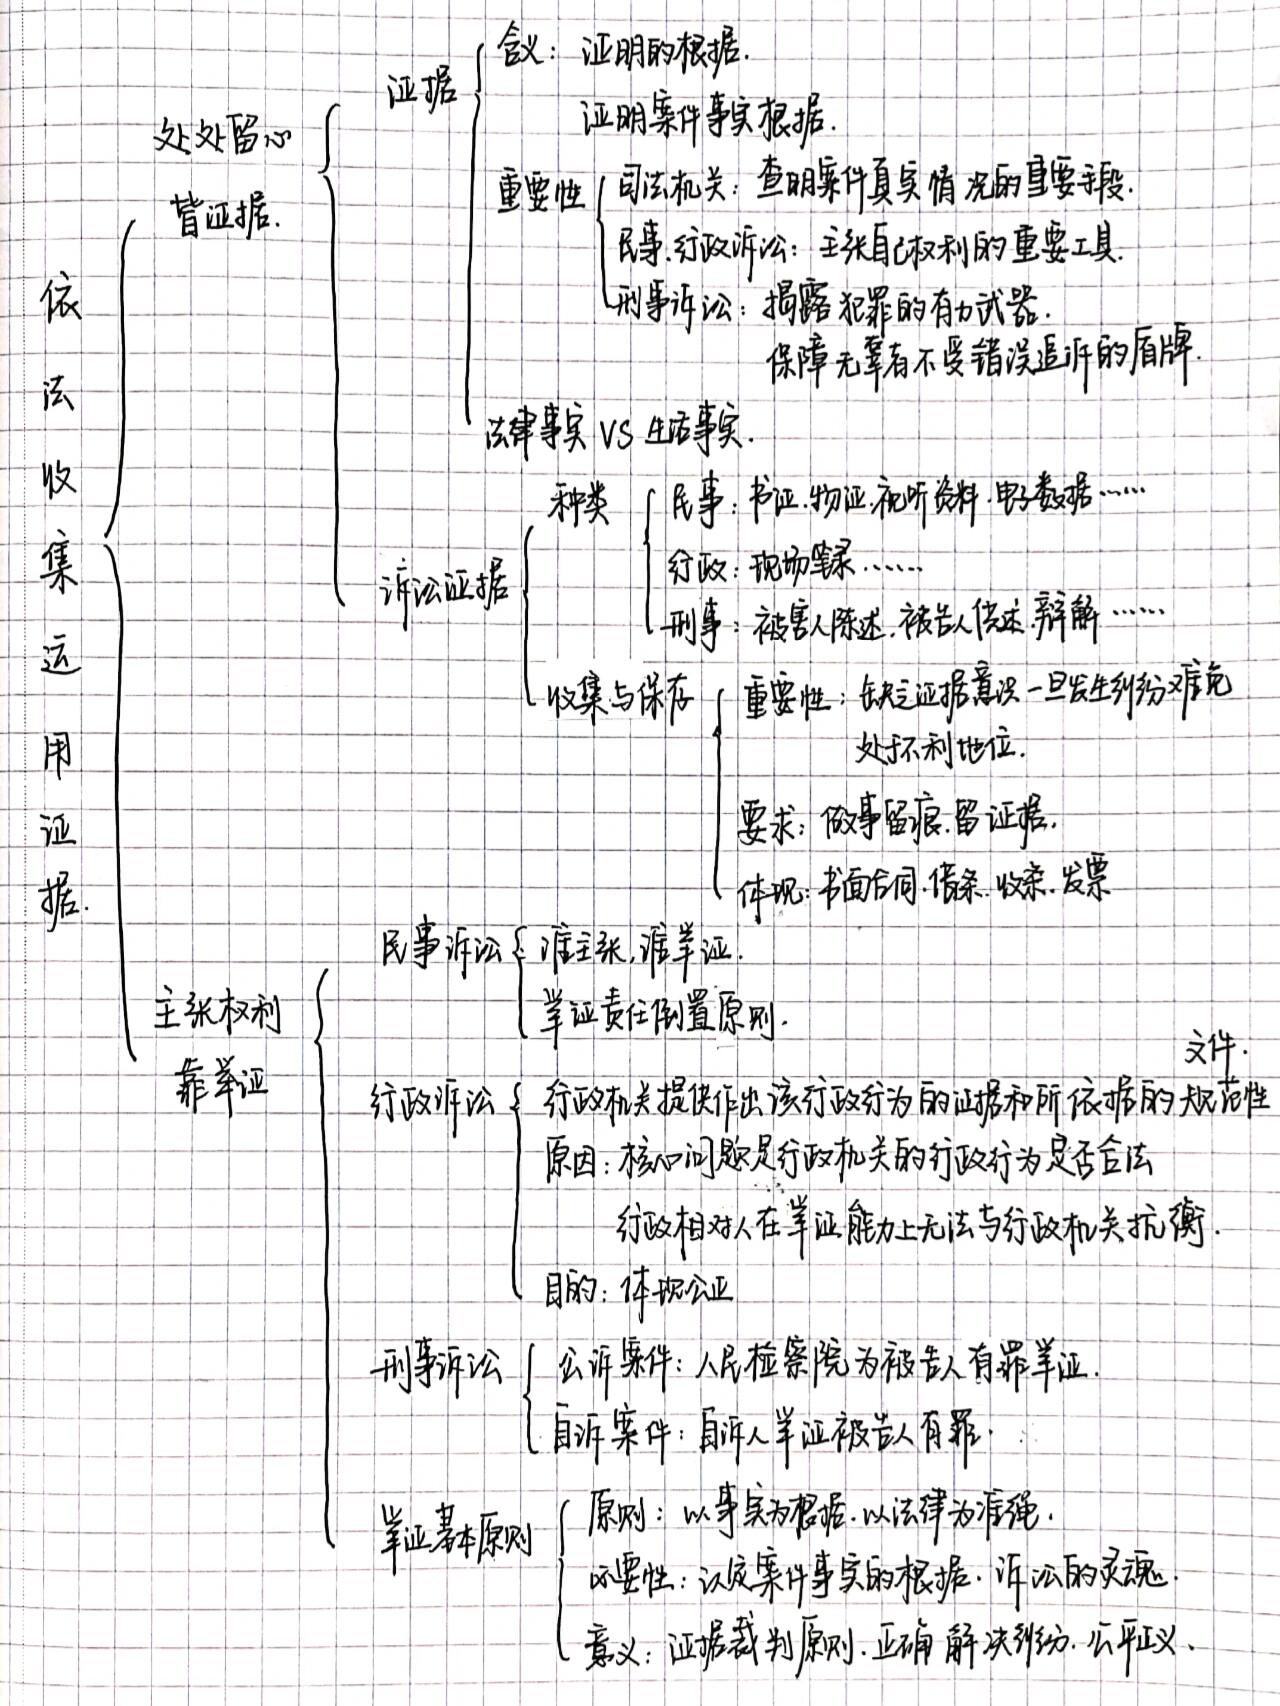 依法收集运用证据.
处处留心
皆证据.
证据
含义：证明的根据.
证明案件事实根据.
重要性
司法机关：查明案件真实情况的重要手段.
民事、行政诉讼：主张自己权利的重要工具.
刑事诉讼：揭露犯罪的有力武器.
保障无辜者不受错误追诉的盾牌.
法律事实 VS 生活事实.
诉讼证据
种类
民事：书证、物证、视听资料、电子数据……
行政：现场笔录……
刑事：被害人陈述、被告人供述、辩解……
收集与保存
重要性：缺乏证据意识一旦发生纠纷难免
处于不利地位.
要求：做事留痕、留证据.
体现：书面合同、借条、收条、发票
主张权利
靠举证
民事诉讼
谁主张,谁举证.
举证责任倒置原则.
行政诉讼
文件.
行政机关提供作出该行政行为的证据和所依据的规范性
原因：核心问题是行政机关的行政行为是否合法
行政相对人在举证能力上无法与行政机关抗衡.
目的：体现公正
刑事诉讼
公诉案件：人民检察院为被告人有罪举证.
自诉案件：自诉人举证被告人有罪.
举证基本原则
原则：以事实为根据、以法律为准绳.
必要性：认定案件事实的根据、诉讼的灵魂.
意义：证据裁判原则、正确解决纠纷、公平正义、